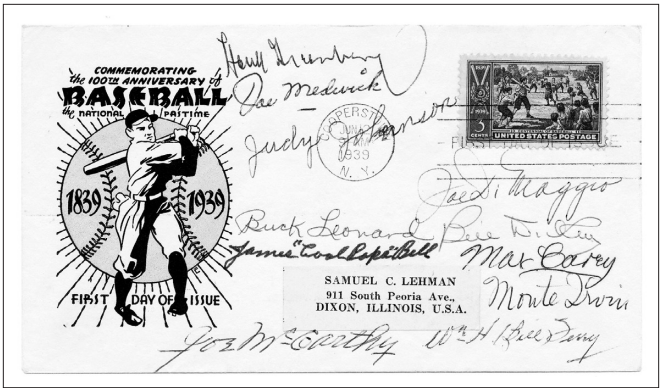 COMMEMORATING
the 100TH ANNIVERSARY of
BASEBALL
the NATIONAL PASTIME
1839 1939
FIRST DAY OF ISSUE
Hank Greenberg
Joe Medwick
Judy Johnson
COOPERSTOWN
JUN 12
1939
N. Y.
3
CENTS
UNITED STATES POSTAGE
FIRST DAY OF ISSUE
Joe Di Maggio
Buck Leonard
Bill Dickey
James "Cool Papa" Bell
Max Carey
Monte Irvin
SAMUEL C. LEHMAN
911 South Peoria Ave.,
DIXON, ILLINOIS, U.S.A.
Joe McCarthy
Wm H "Bill" Terry